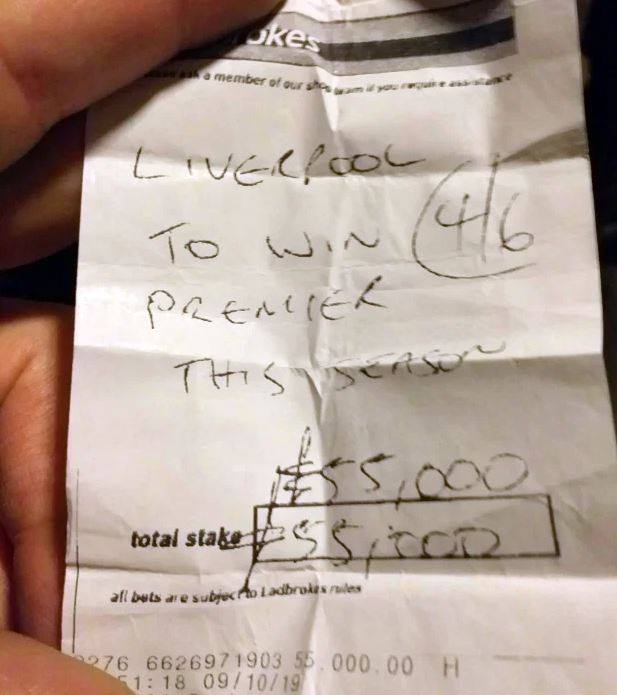 okes
ask a member of our shop team if you require assistance
LIVERPOOL
TO WIN 4/6
PREMIER
THIS SEASON
£55,000
total stake £55,000
all bets are subject to Ladbrokes rules
0276 6626971903 55,000.00 H
51:18 09/10/19